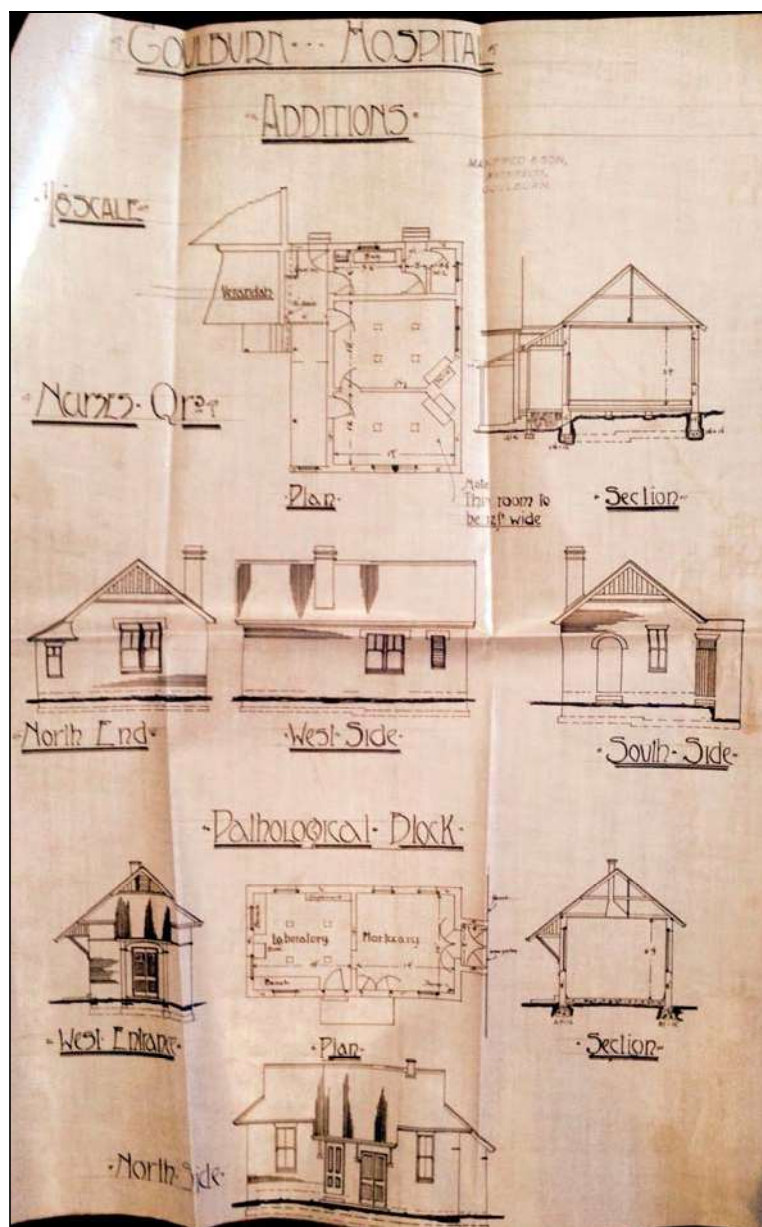 GOULBURN HOSPITAL
ADDITIONS
1/8 SCALE
MANFRED & SON,
ARCHITECTS,
GOULBURN
Verandah
Bath
NURSES QRS
Plan
Note
This room to
be wide
Section
North End
West Side
South Side
Pathological Block
Laboratory
Mortuary
Bench
West Entrance
Plan
Section
North Side